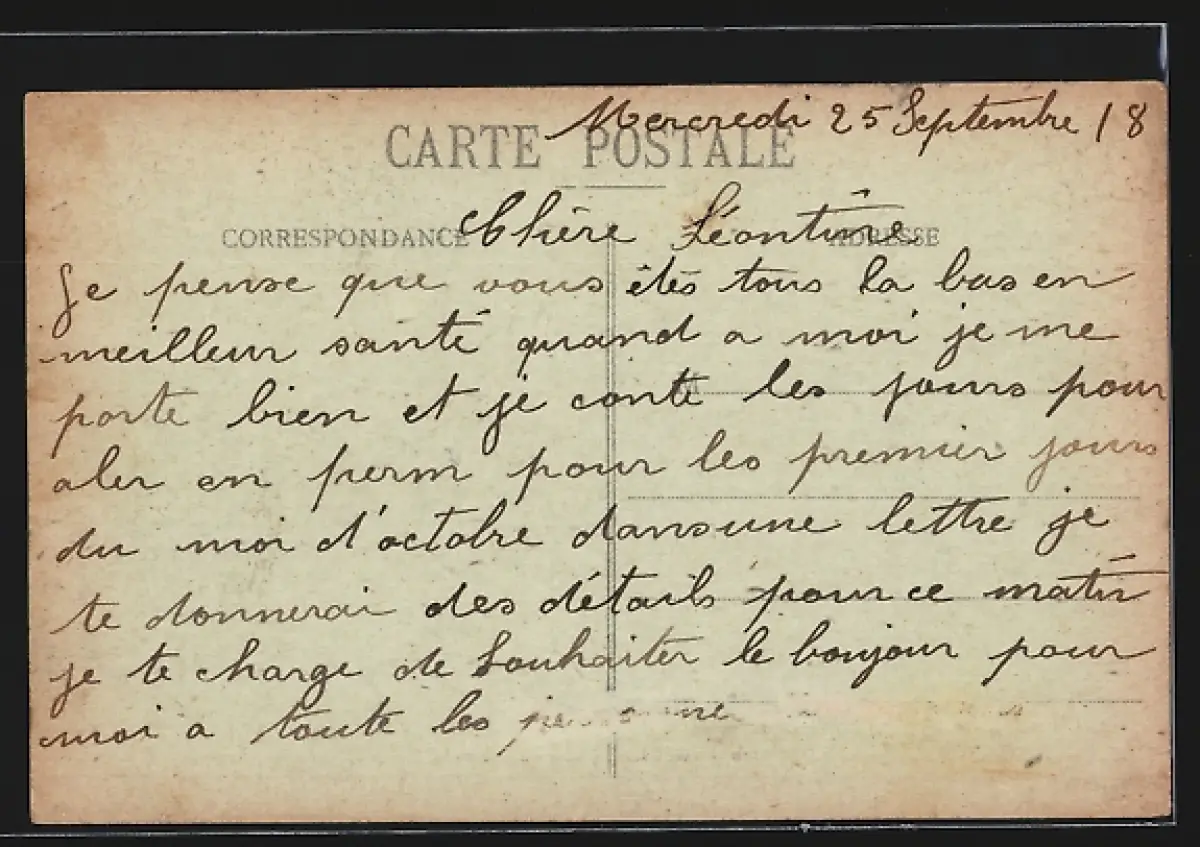 Mercredi 25 Septembre 18
CARTE POSTALE
CORRESPONDANCE
ADRESSE
Chière Léontine
Je pense que vous êtes tous la bas en
meilleur santé quand a moi je me
porte bien et je conte les jours pour
aler en perm pour les premier jours
du moi d'octobre dans une lettre je
te donnerai des détails pour ce matin
je te charge de Souhaiter le bonjour pour
moi a toute les